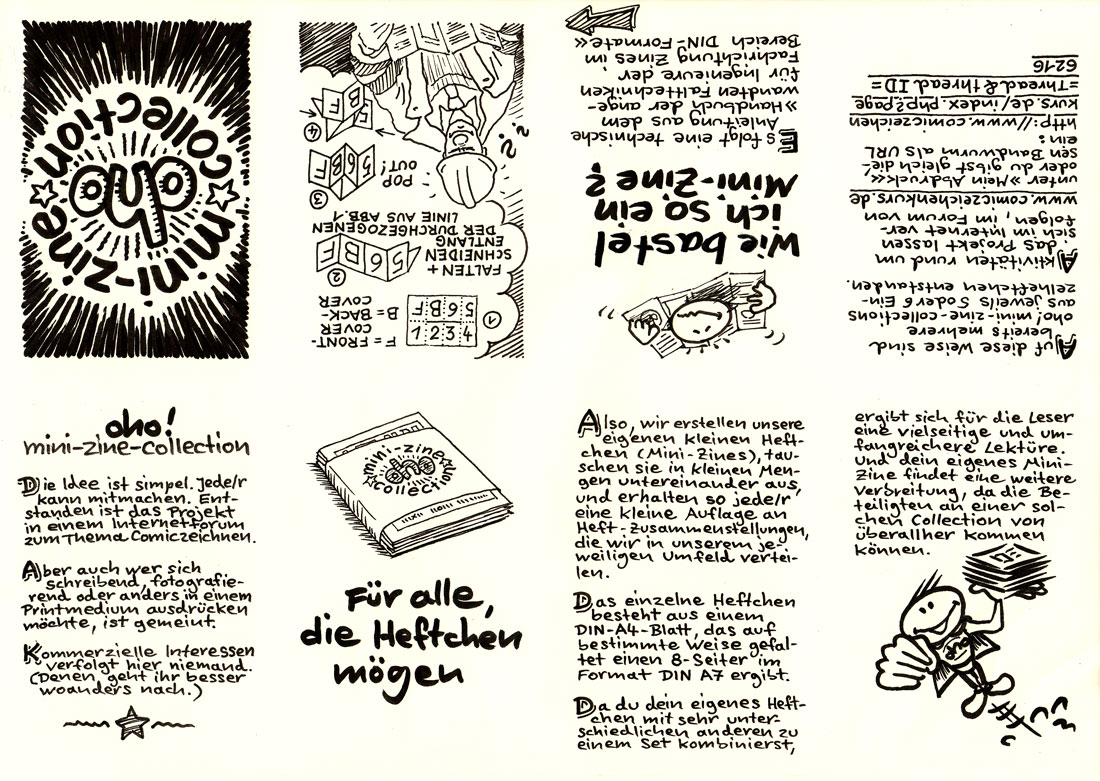 mini-zine
oho
collection
oho!
mini-zine-collection
Die Idee ist simpel. Jede/r
kann mitmachen. Ent-
standen ist das Projekt
in einem Internetforum
zum Thema Comiczeichnen.
Aber auch wer sich
schreibend, fotografie-
rend oder anders in einem
Printmedium ausdrücken
möchte, ist gemeint.
Kommerzielle Interessen
verfolgt hier niemand.
(Denen geht ihr besser
woanders nach.)
mini-zine
oho
collection
Für alle,
die Heftchen
mögen
Also, wir erstellen unsere
eigenen kleinen Heft-
chen (Mini-Zines), tau-
schen sie in kleinen Men-
gen untereinander aus,
und erhalten so jede/r
eine kleine Auflage an
Heft-Zusammenstellungen,
die wir in unserem je-
weiligen Umfeld vertei-
len.
Das einzelne Heftchen
besteht aus einem
DIN-A4-Blatt, das auf
bestimmte Weise gefal-
tet einen 8-Seiter im
Format DIN A7 ergibt.
Da du dein eigenes Heft-
chen mit sehr unter-
schiedlichen anderen zu
einem Set kombinierst,
ergibt sich für die Leser
eine vielseitige und um-
fangreichere Lektüre.
Und dein eigenes Mini-
Zine findet eine weitere
Verbreitung, da die Be-
teiligten an einer sol-
chen Collection von
überallher kommen
können.
oho
Auf diese Weise sind
bereits mehrere
oho! mini-zine-collections
aus jeweils 5 oder 6 Ein-
zelheftchen entstanden.
Aktivitäten rund um
das Projekt lassen
sich im Internet ver-
folgen, im Forum von
www.comiczeichenkurs.de
unter »Mein Abdruck«
oder du gibst gleich die-
sen Bandwurm als URL
ein:
http://www.comiczeichen
kurs.de/index.php?page
=Thread&threadID=
6216
Wie bastel
ich so ein
Mini-Zine?
Es folgt eine technische
Anleitung aus dem
»Handbuch der ange-
wandten Falttechniken
für Ingenieure der
Fachrichtung Zines im
Bereich DIN-Formate«
1
F = FRONT-
COVER
B = BACK-
COVER
F B 6 5
1 2 3 4
2
FALTEN +
SCHNEIDEN
ENTLANG
DER DURCHGEZOGENEN
LINIE AUS ABB. 1
5 6 B F
3
POP
OUT!
5 6 B F
4
B F